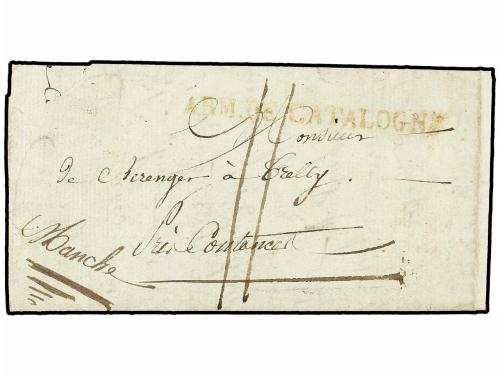 ARM. DE CATALOGNE
Monsieur
De Berenger à Trelly.
Près Coutances
Manche